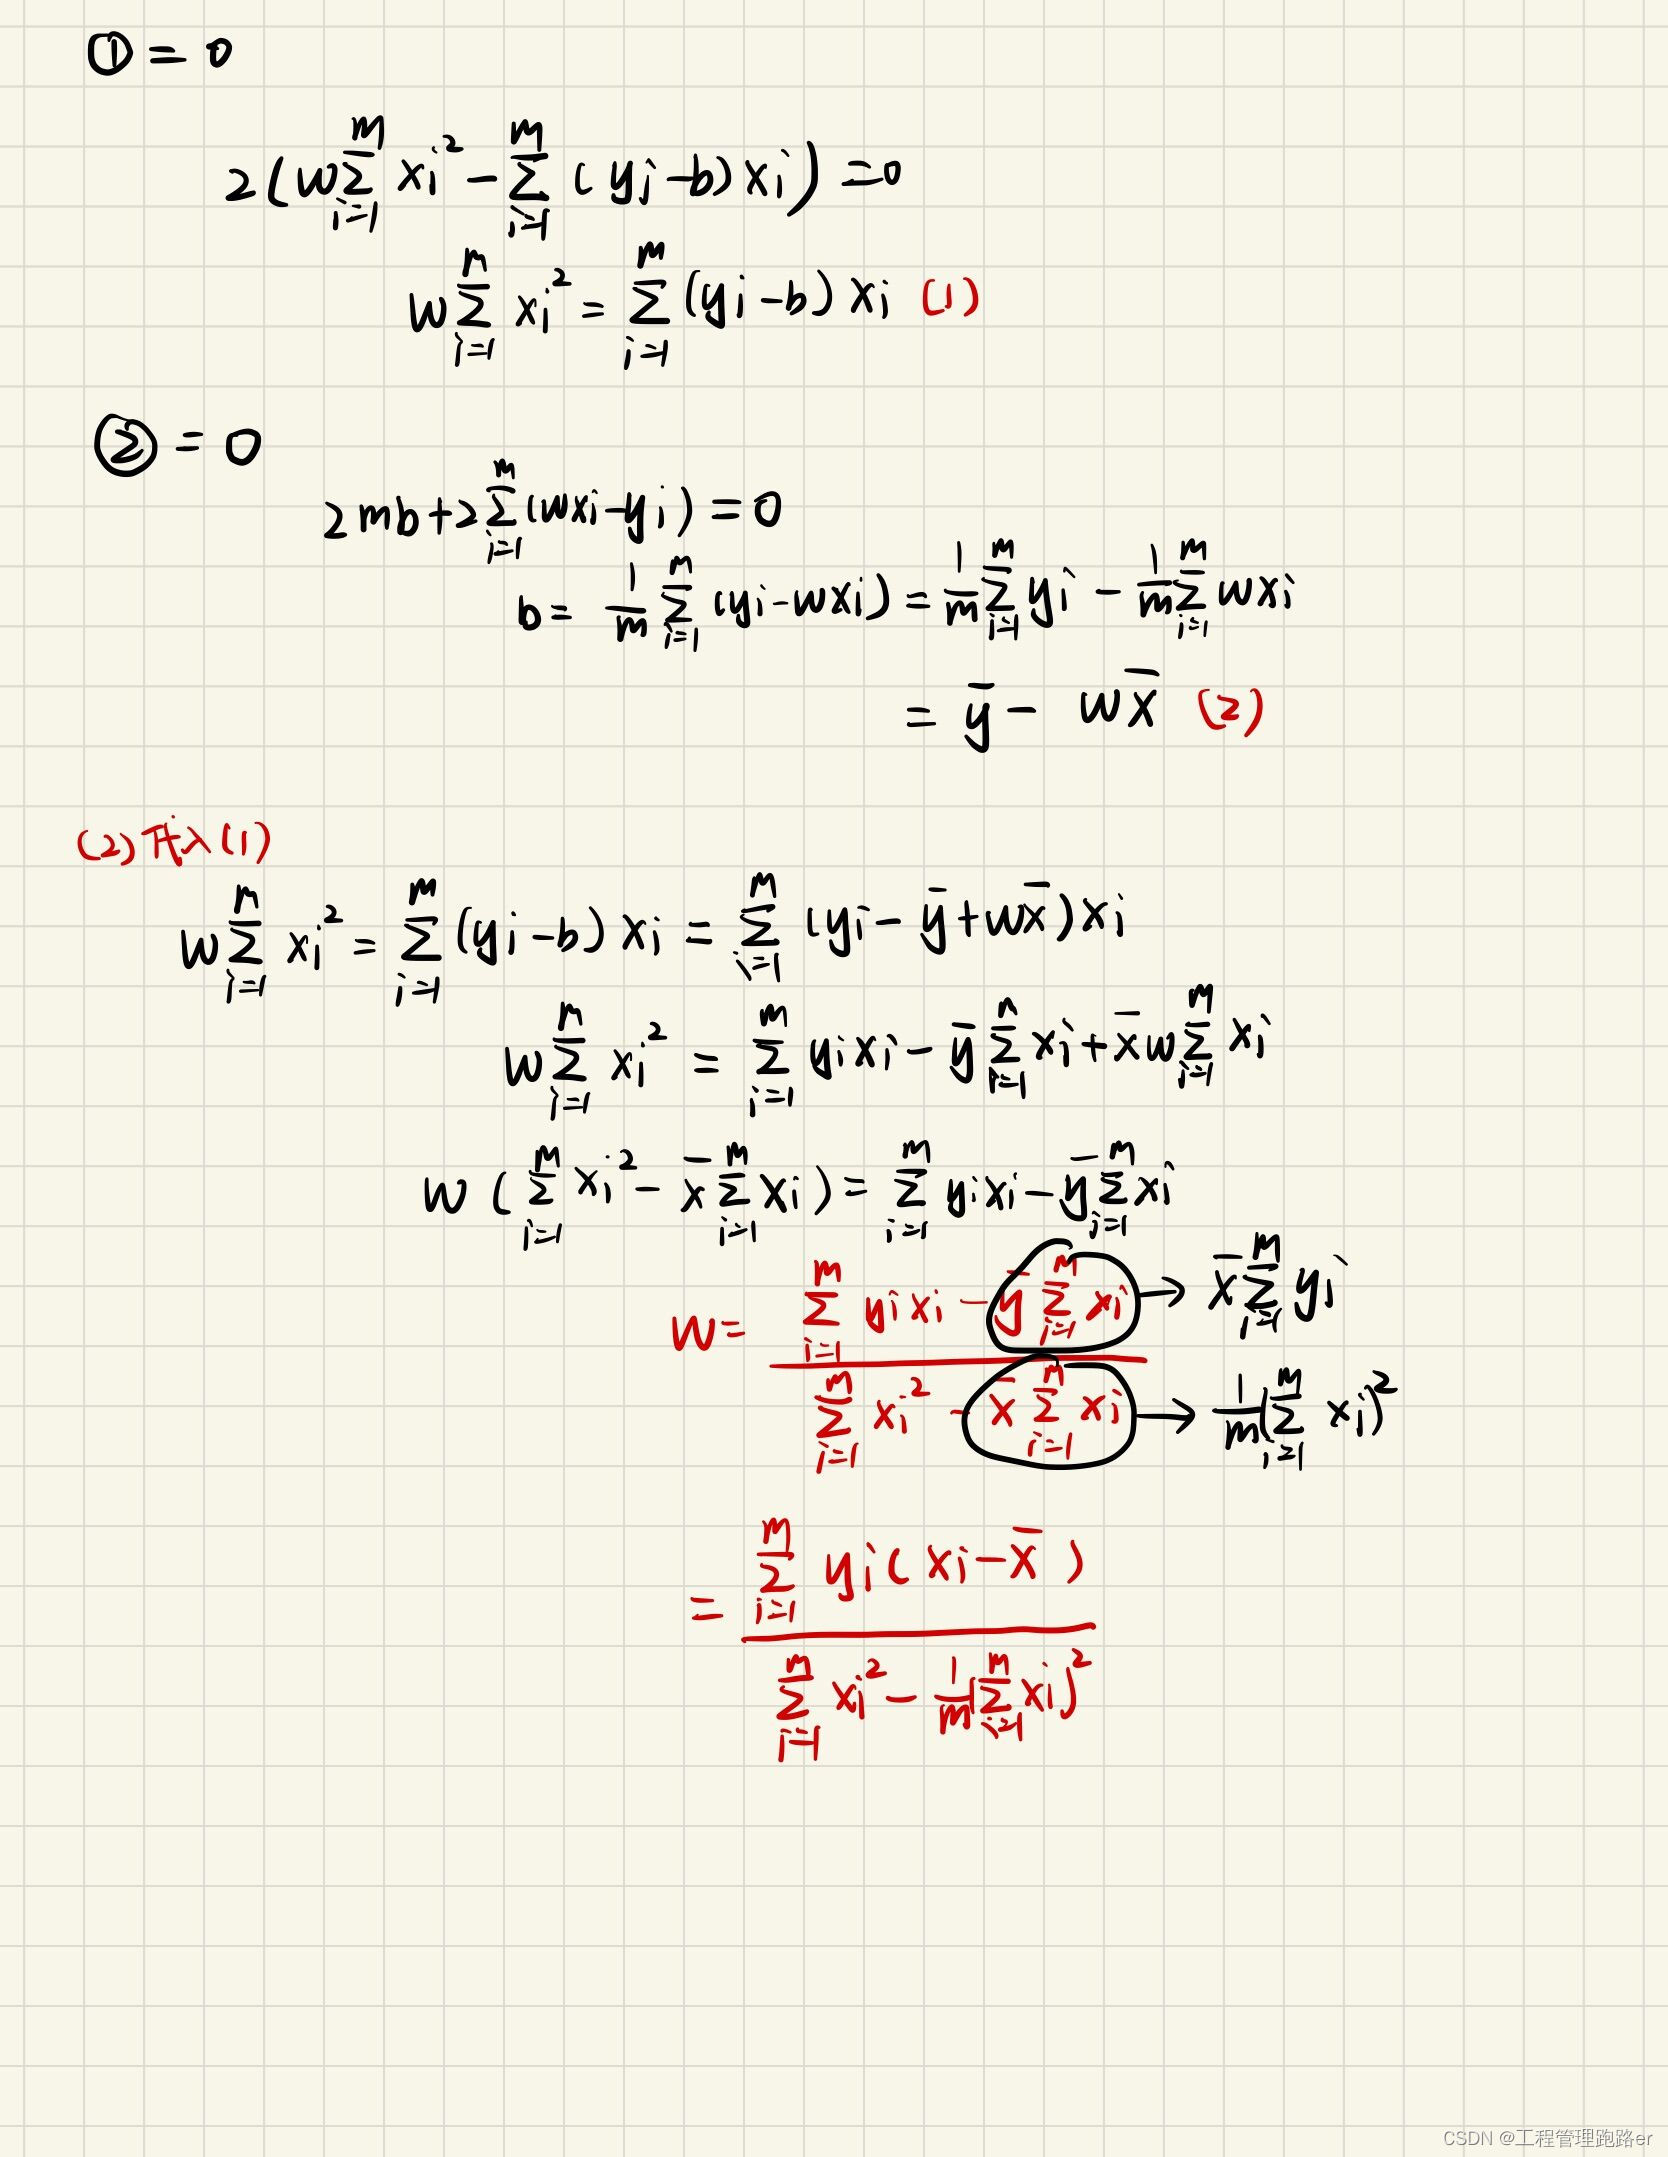 ① = 0
2(w∑_{i=1}^{m} x_i^2 - ∑_{i=1}^{m} (y_i - b)x_i) = 0
w∑_{i=1}^{m} x_i^2 = ∑_{i=1}^{m} (y_i - b)x_i (1)
② = 0
2mb + 2∑_{i=1}^{m} (wx_i - y_i) = 0
b = \frac{1}{m} ∑_{i=1}^{m} (y_i - wx_i) = \frac{1}{m} ∑_{i=1}^{m} y_i - \frac{1}{m} ∑_{i=1}^{m} wx_i
= \bar{y} - w\bar{x} (2)
(2)代入(1)
w∑_{i=1}^{m} x_i^2 = ∑_{i=1}^{m} (y_i - b)x_i = ∑_{i=1}^{m} (y_i - \bar{y} + w\bar{x})x_i
w∑_{i=1}^{m} x_i^2 = ∑_{i=1}^{m} y_i x_i - \bar{y}∑_{i=1}^{m} x_i + \bar{x}w∑_{i=1}^{m} x_i
w(∑_{i=1}^{m} x_i^2 - \bar{x}∑_{i=1}^{m} x_i) = ∑_{i=1}^{m} y_i x_i - \bar{y}∑_{i=1}^{m} x_i
w = \frac{∑_{i=1}^{m} y_i x_i - \bar{y}∑_{i=1}^{m} x_i}{∑_{i=1}^{m} x_i^2 - \bar{x}∑_{i=1}^{m} x_i}
→ \bar{x}∑_{i=1}^{m} y_i
→ \frac{1}{m}(∑_{i=1}^{m} x_i)^2
= \frac{∑_{i=1}^{m} y_i(x_i - \bar{x})}{∑_{i=1}^{m} x_i^2 - \frac{1}{m}(∑_{i=1}^{m} x_i)^2}
CSDN @工程管理跑路er